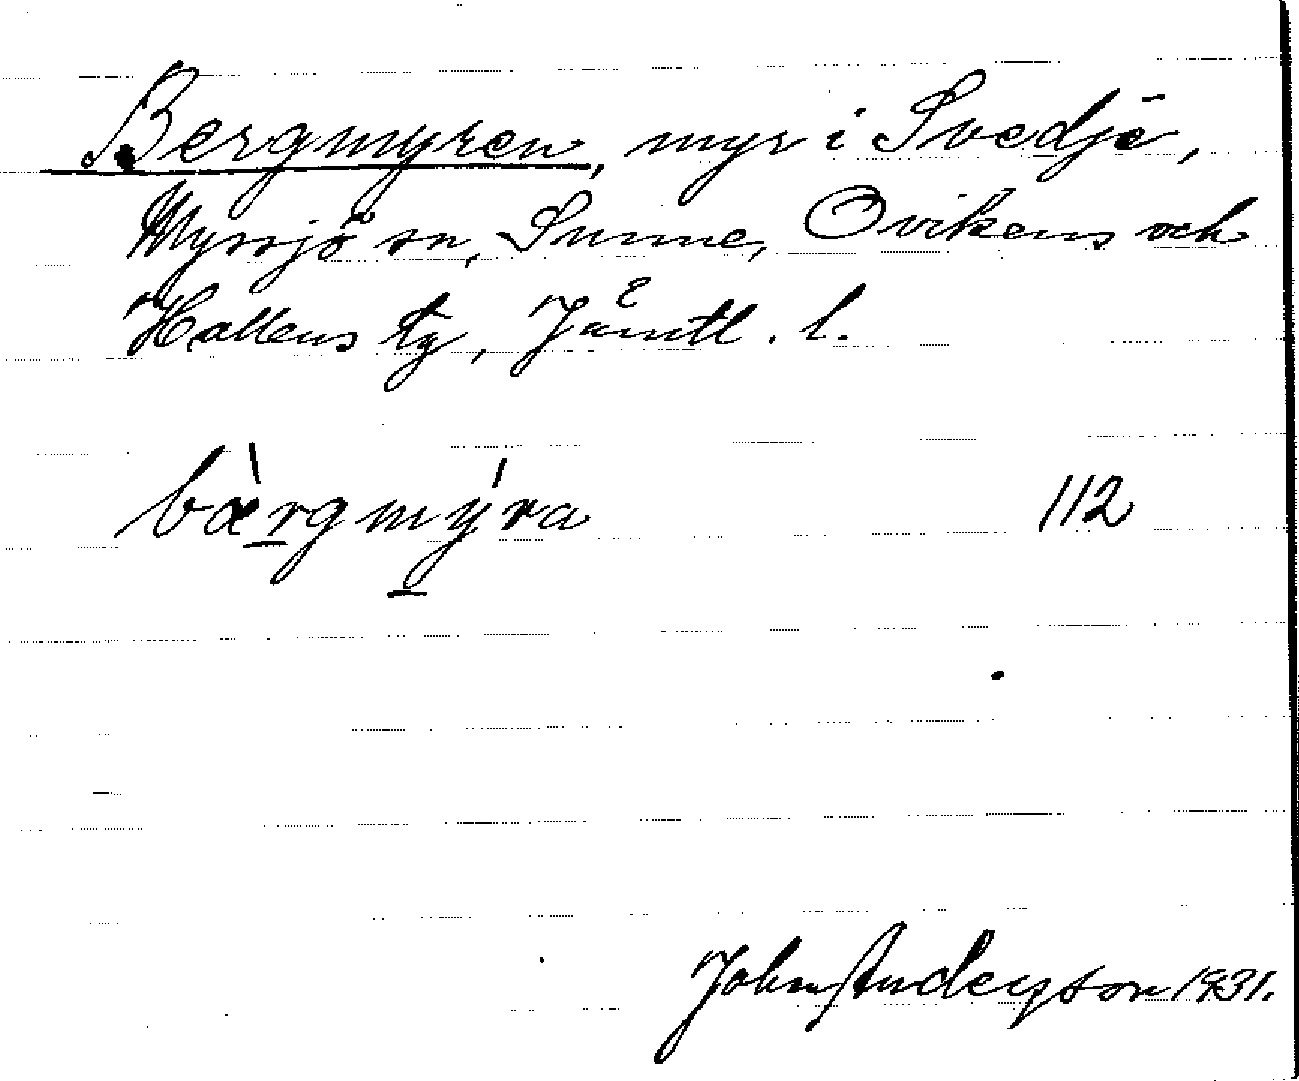 Bergmyren, myr i Svedje,
Myssjö sn, Sunne, Ovikens och
Hallens tg, Jämtl. l.
bæ̀rgmýra 112
John Anderson 1931.